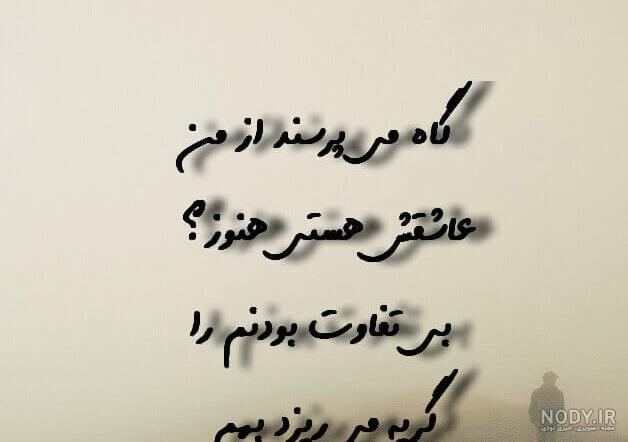 گاه می پرسند از من
عاشقش هستی هنوز؟
بی تفاوت بودنم را
گریه می ریزد بهم
NODY.IR
مجله تصویری، خبری نودی